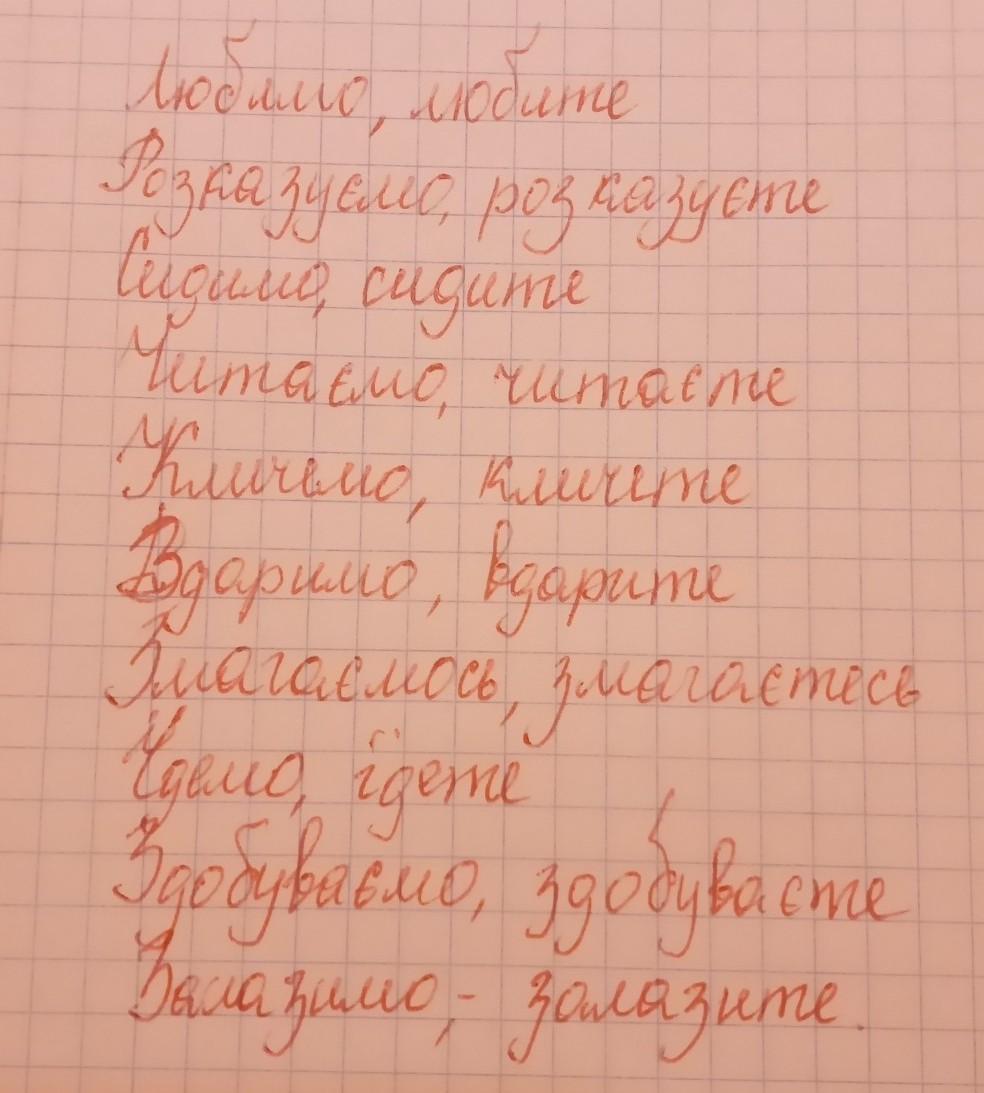 Любимо, любите
Розказуємо, розказуєте
Сидимо, сидите
Читаємо, читаєте
Кличемо, кличете
Вдаримо, вдарите
Змагаємось, змагаєтесь
Їдемо, їдете
Здобуваємо, здобуваєте
Залазимо, - залазите.